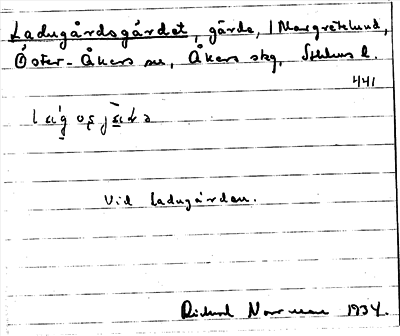 Ladugårdsgärdet, gärde, / Margretelund,
Öster-Åkers sn, Åkers skg, Sthlms l.
441
Vid ladugården.
Rickard Norrman 1934.